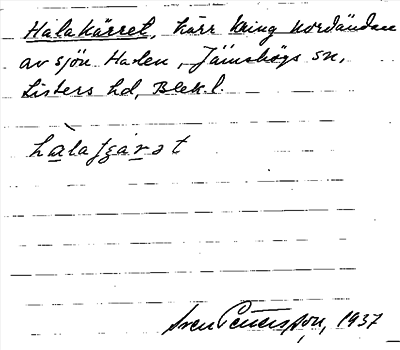 Halakärret, kärr kring nordändan
av sjön Halen, Jämshögs sn,
Listers hd, Blek l.
Sven Petersson, 1937